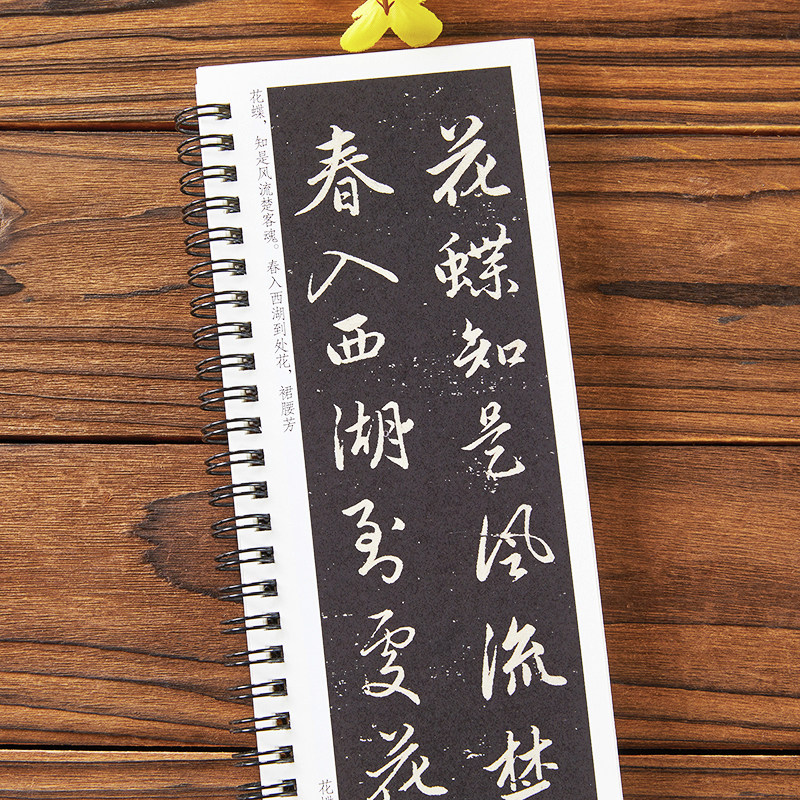 花蝶知是风流楚
春入西湖到处花
花蝶，知是风流楚客魂。春入西湖到处花，裙腰芳
花